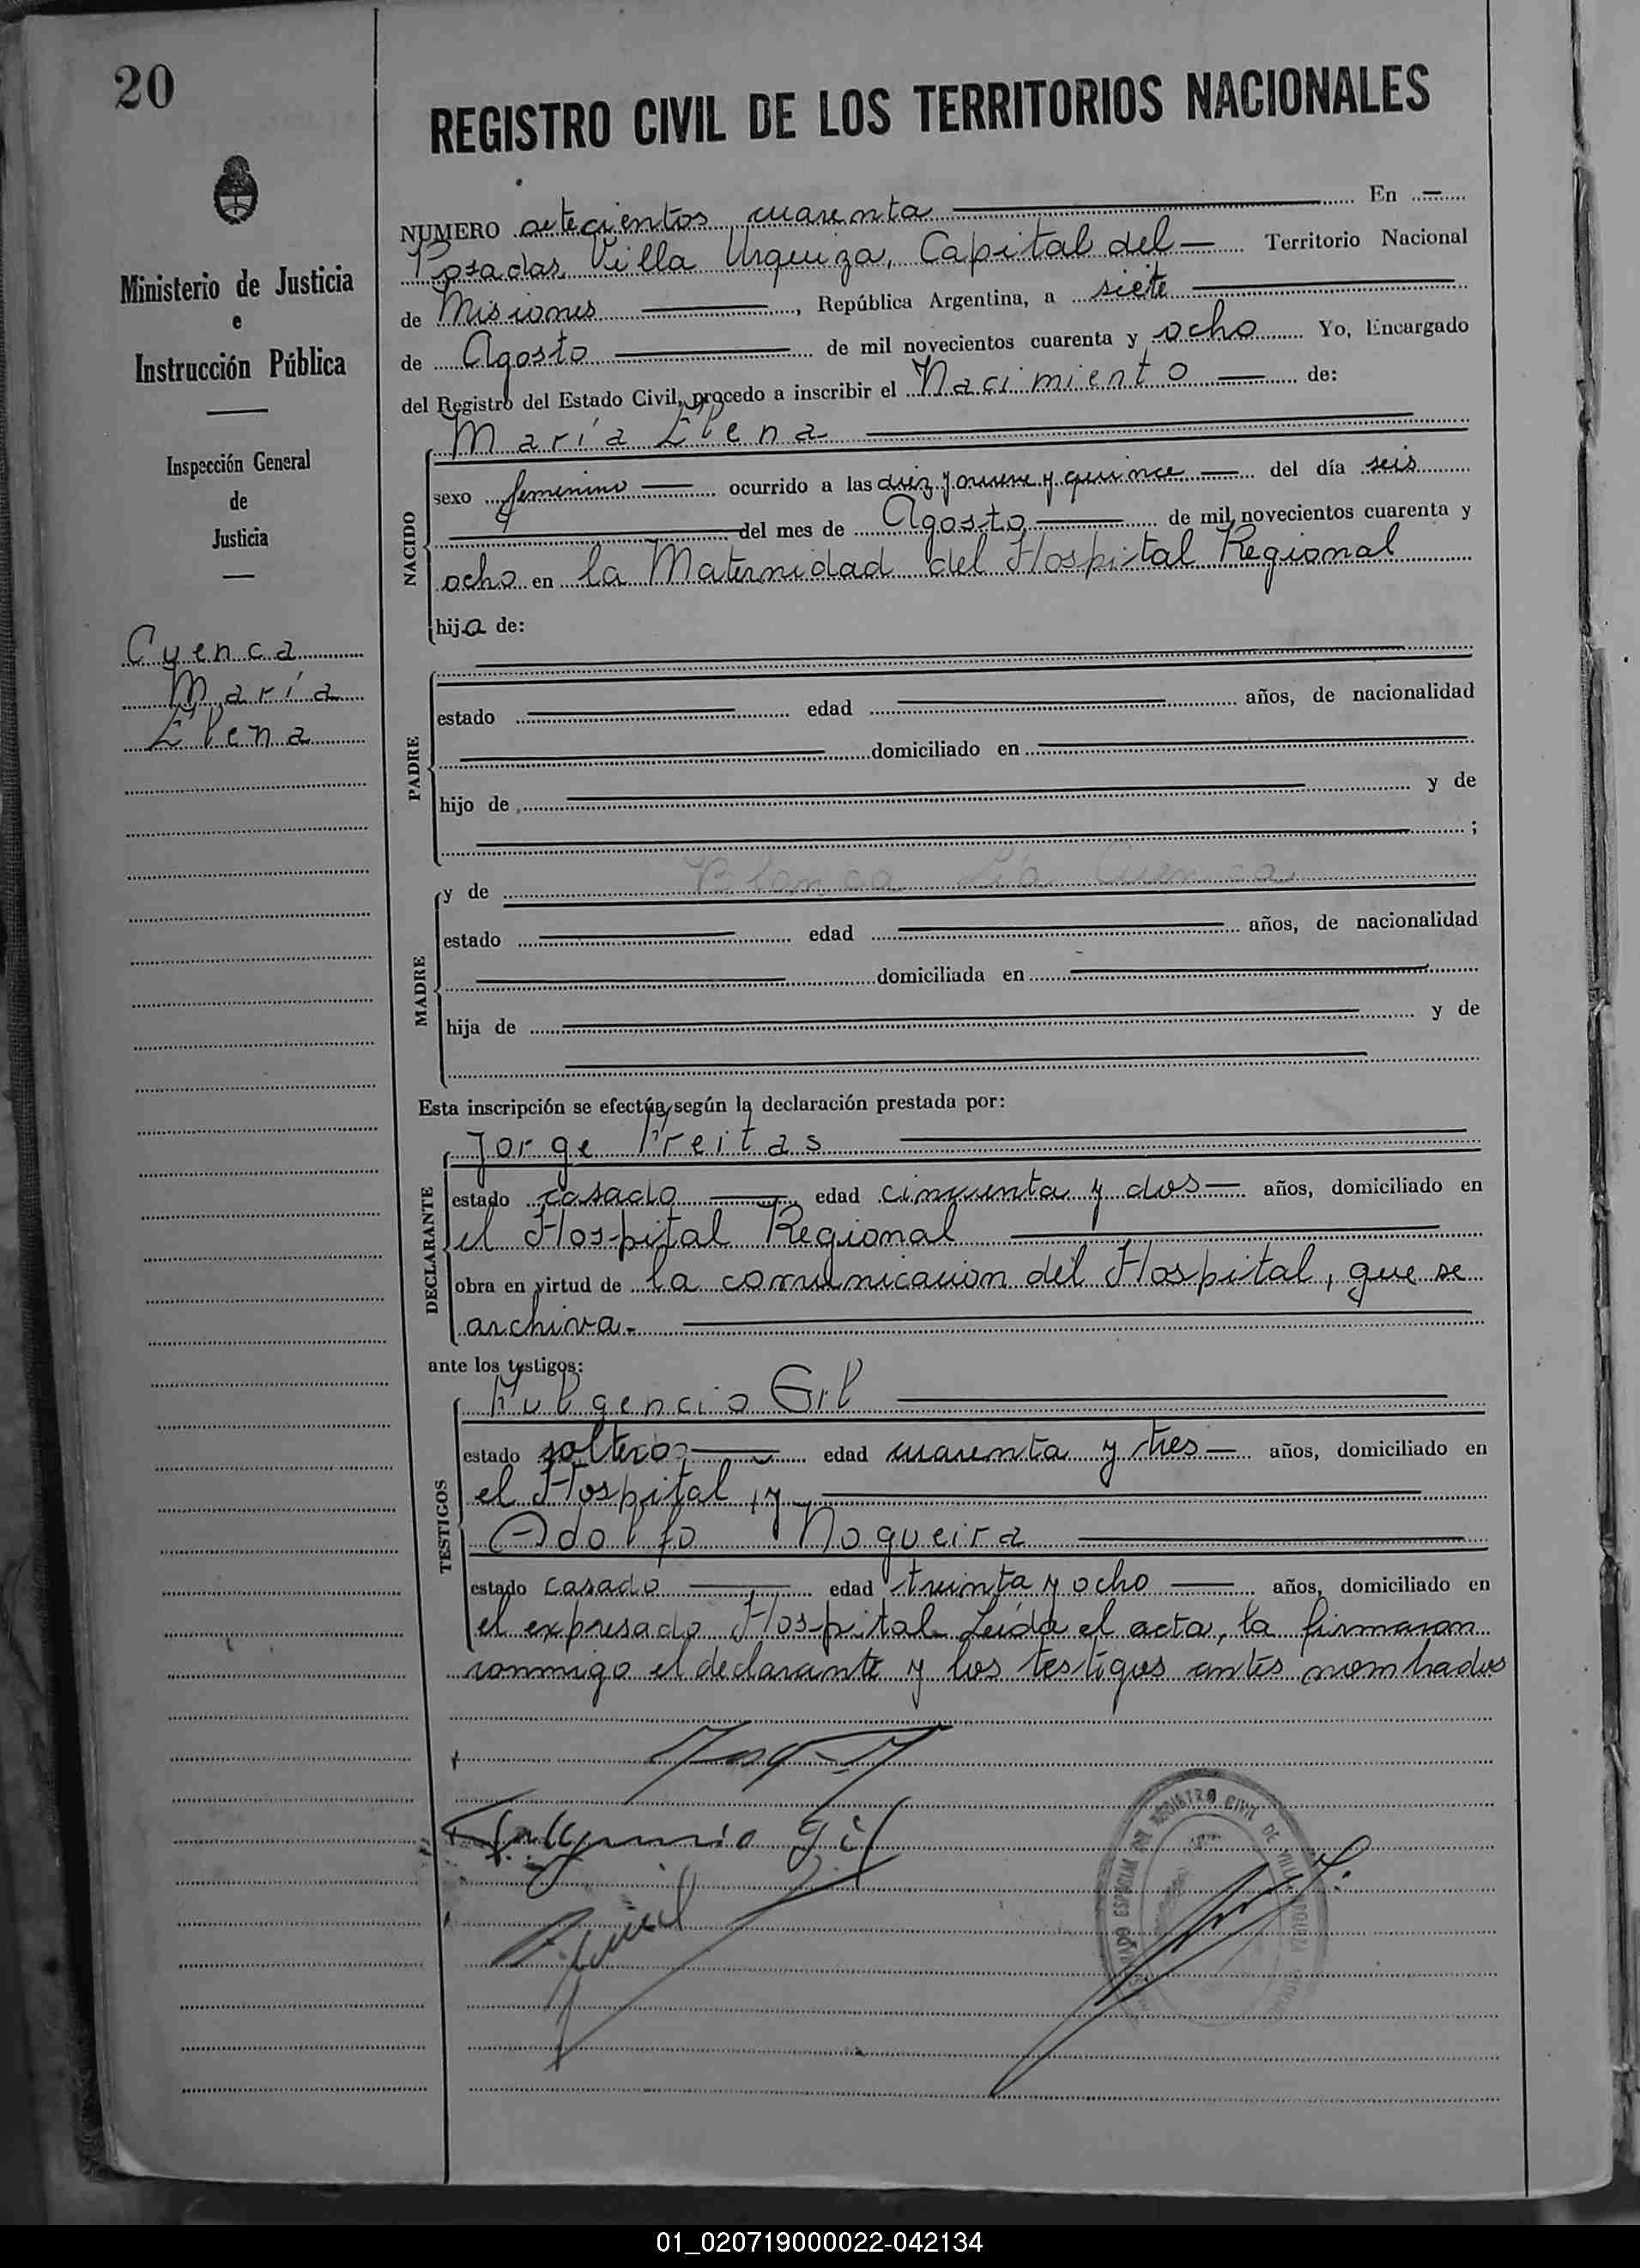 20
REGISTRO CIVIL DE LOS TERRITORIOS NACIONALES
Ministerio de Justicia
e
Instrucción Pública
Inspección General
de
Justicia
Cuenca
María
Elena
NUMERO setecientos cuarenta En
Posadas Villa Urquiza, Capital del Territorio Nacional
de Misiones, República Argentina, a siete
de Agosto de mil novecientos cuarenta y ocho Yo, Encargado
del Registro del Estado Civil, procedo a inscribir el Nacimiento de:
NACIDO
María Elena
sexo femenino ocurrido a las diez y nueve y quince del día seis
del mes de Agosto de mil novecientos cuarenta y
ocho en la Maternidad del Hospital Regional
hija de:
PADRE
estado edad años, de nacionalidad
domiciliado en
hijo de y de
;
MADRE
y de Blanca Lía Cuenca
estado edad años, de nacionalidad
domiciliada en
hija de y de
Esta inscripción se efectúa según la declaración prestada por:
DECLARANTE
Jorge Freitas
estado casado edad cincuenta y dos años, domiciliado en
el Hospital Regional
obra en virtud de la comunicacion del Hospital, que se
archiva.-
ante los testigos:
TESTIGOS
Fulgencio Gil
estado soltero edad cuarenta y tres años, domiciliado en
el Hospital, y
Adolfo Nogueira
estado casado edad treinta y ocho años, domiciliado en
el expresado Hospital. Leída el acta, la firmaron
conmigo el declarante y los testigos antes nombrados
Fulgencio Gil
REGISTRO CIVIL DE VILLA URQUIZA
01_020719000022-042134